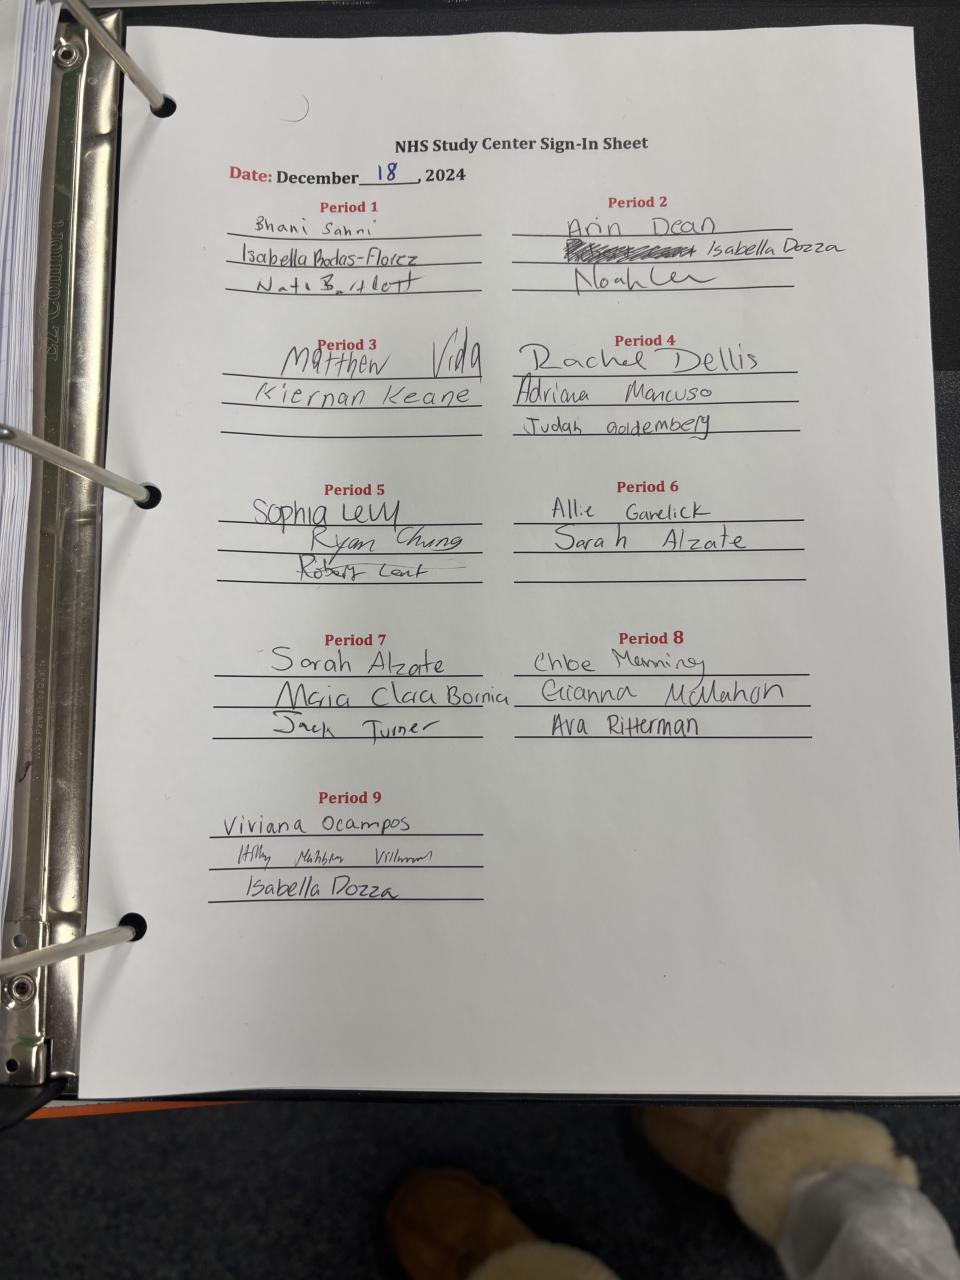 NHS Study Center Sign-In Sheet
Date: December 18, 2024
Period 1
Bhani Sahni
Isabella Rodas-Florez
Nate Bartlett
Period 2
Arin Dean
Isabella Dozza
Noah Lee
Period 3
Matthew Vida
Kiernan Keane
Period 4
Rachel Dellis
Adriana Mancuso
Judah Goldemberg
Period 5
Sophia Levy
Ryan Chung
Robert Lent
Period 6
Allie Garelick
Sarah Alzate
Period 7
Sarah Alzate
Maria Clara Bornia
Jack Turner
Period 8
Chloe Manning
Gianna McMahon
Ava Ritterman
Period 9
Viviana Ocampos
Isabella Dozza